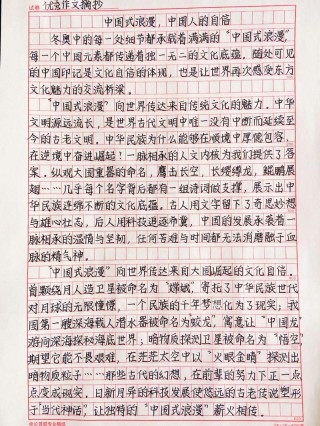 优秀作文摘抄
中国式浪漫，中国人的自信
冬奥中的每一处细节都承载着满满的“中国式浪漫”
每一个中国元素都传递着独一无二的文化底蕴。随处可见
的中国印记是文化自信的体现，也是让世界再次感受东方
文化魅力的交流桥梁。
“中国式浪漫”向世界传达来自传统文化的魅力。中华
文明源远流长，是世界古代文明中唯一没有中断而延续至
今的古老文明。中华民族为什么能够在顺境中厚德包容，
在逆境中奋进崛起？一脉相承的人文内核为我们提供了答
案。纵观大国重器的命名，鹰击长空，长缨缚龙，鲲鹏展
翅……几乎每个名字背后都有一组诗词做支撑，展示出中
华民族生生不息的文化底蕴。古人用文字留下了奇思妙想
与雄心壮志，后人用科技追逐希冀，中国的发展承袭着一
脉相承的温情与坚韧，任何苦难与时间都无法消磨融于血
脉的精气神。
“中国式浪漫”向世界传达来自大国崛起的文化自信。
首颗绕月人造卫星被命名为“嫦娥”，寄托了中华民族世代
对月球的无限憧憬，一个民族的千年梦想化为了现实；我
国第一艘深海载人潜水器被命名为蛟龙”，寓意让“中国龙”
游向深海探秘海底世界；暗物质探测卫星被命名为“悟空”
期望它能不畏艰难，在茫茫太空中以“火眼金睛”探测出
暗物质粒子……那些古代的幻想，在前辈的努力下正一点
点变成现实，日新月异的科技发展使悠远的古老传说塑形
于当代神话”，让独特的“中国式浪漫”薪火相传。